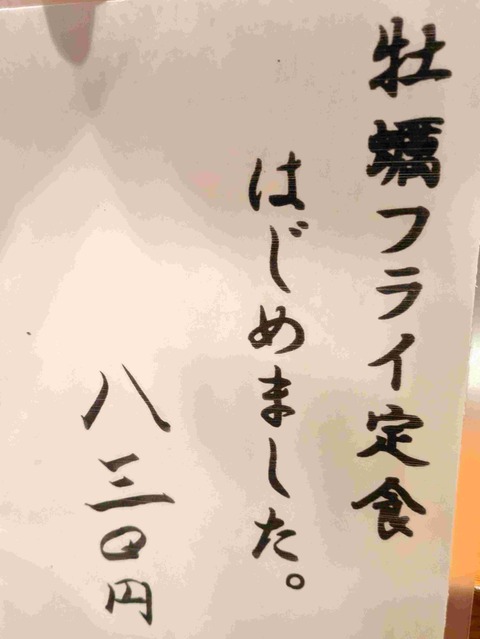 牡蠣フライ定食
はじめました。
八三〇円